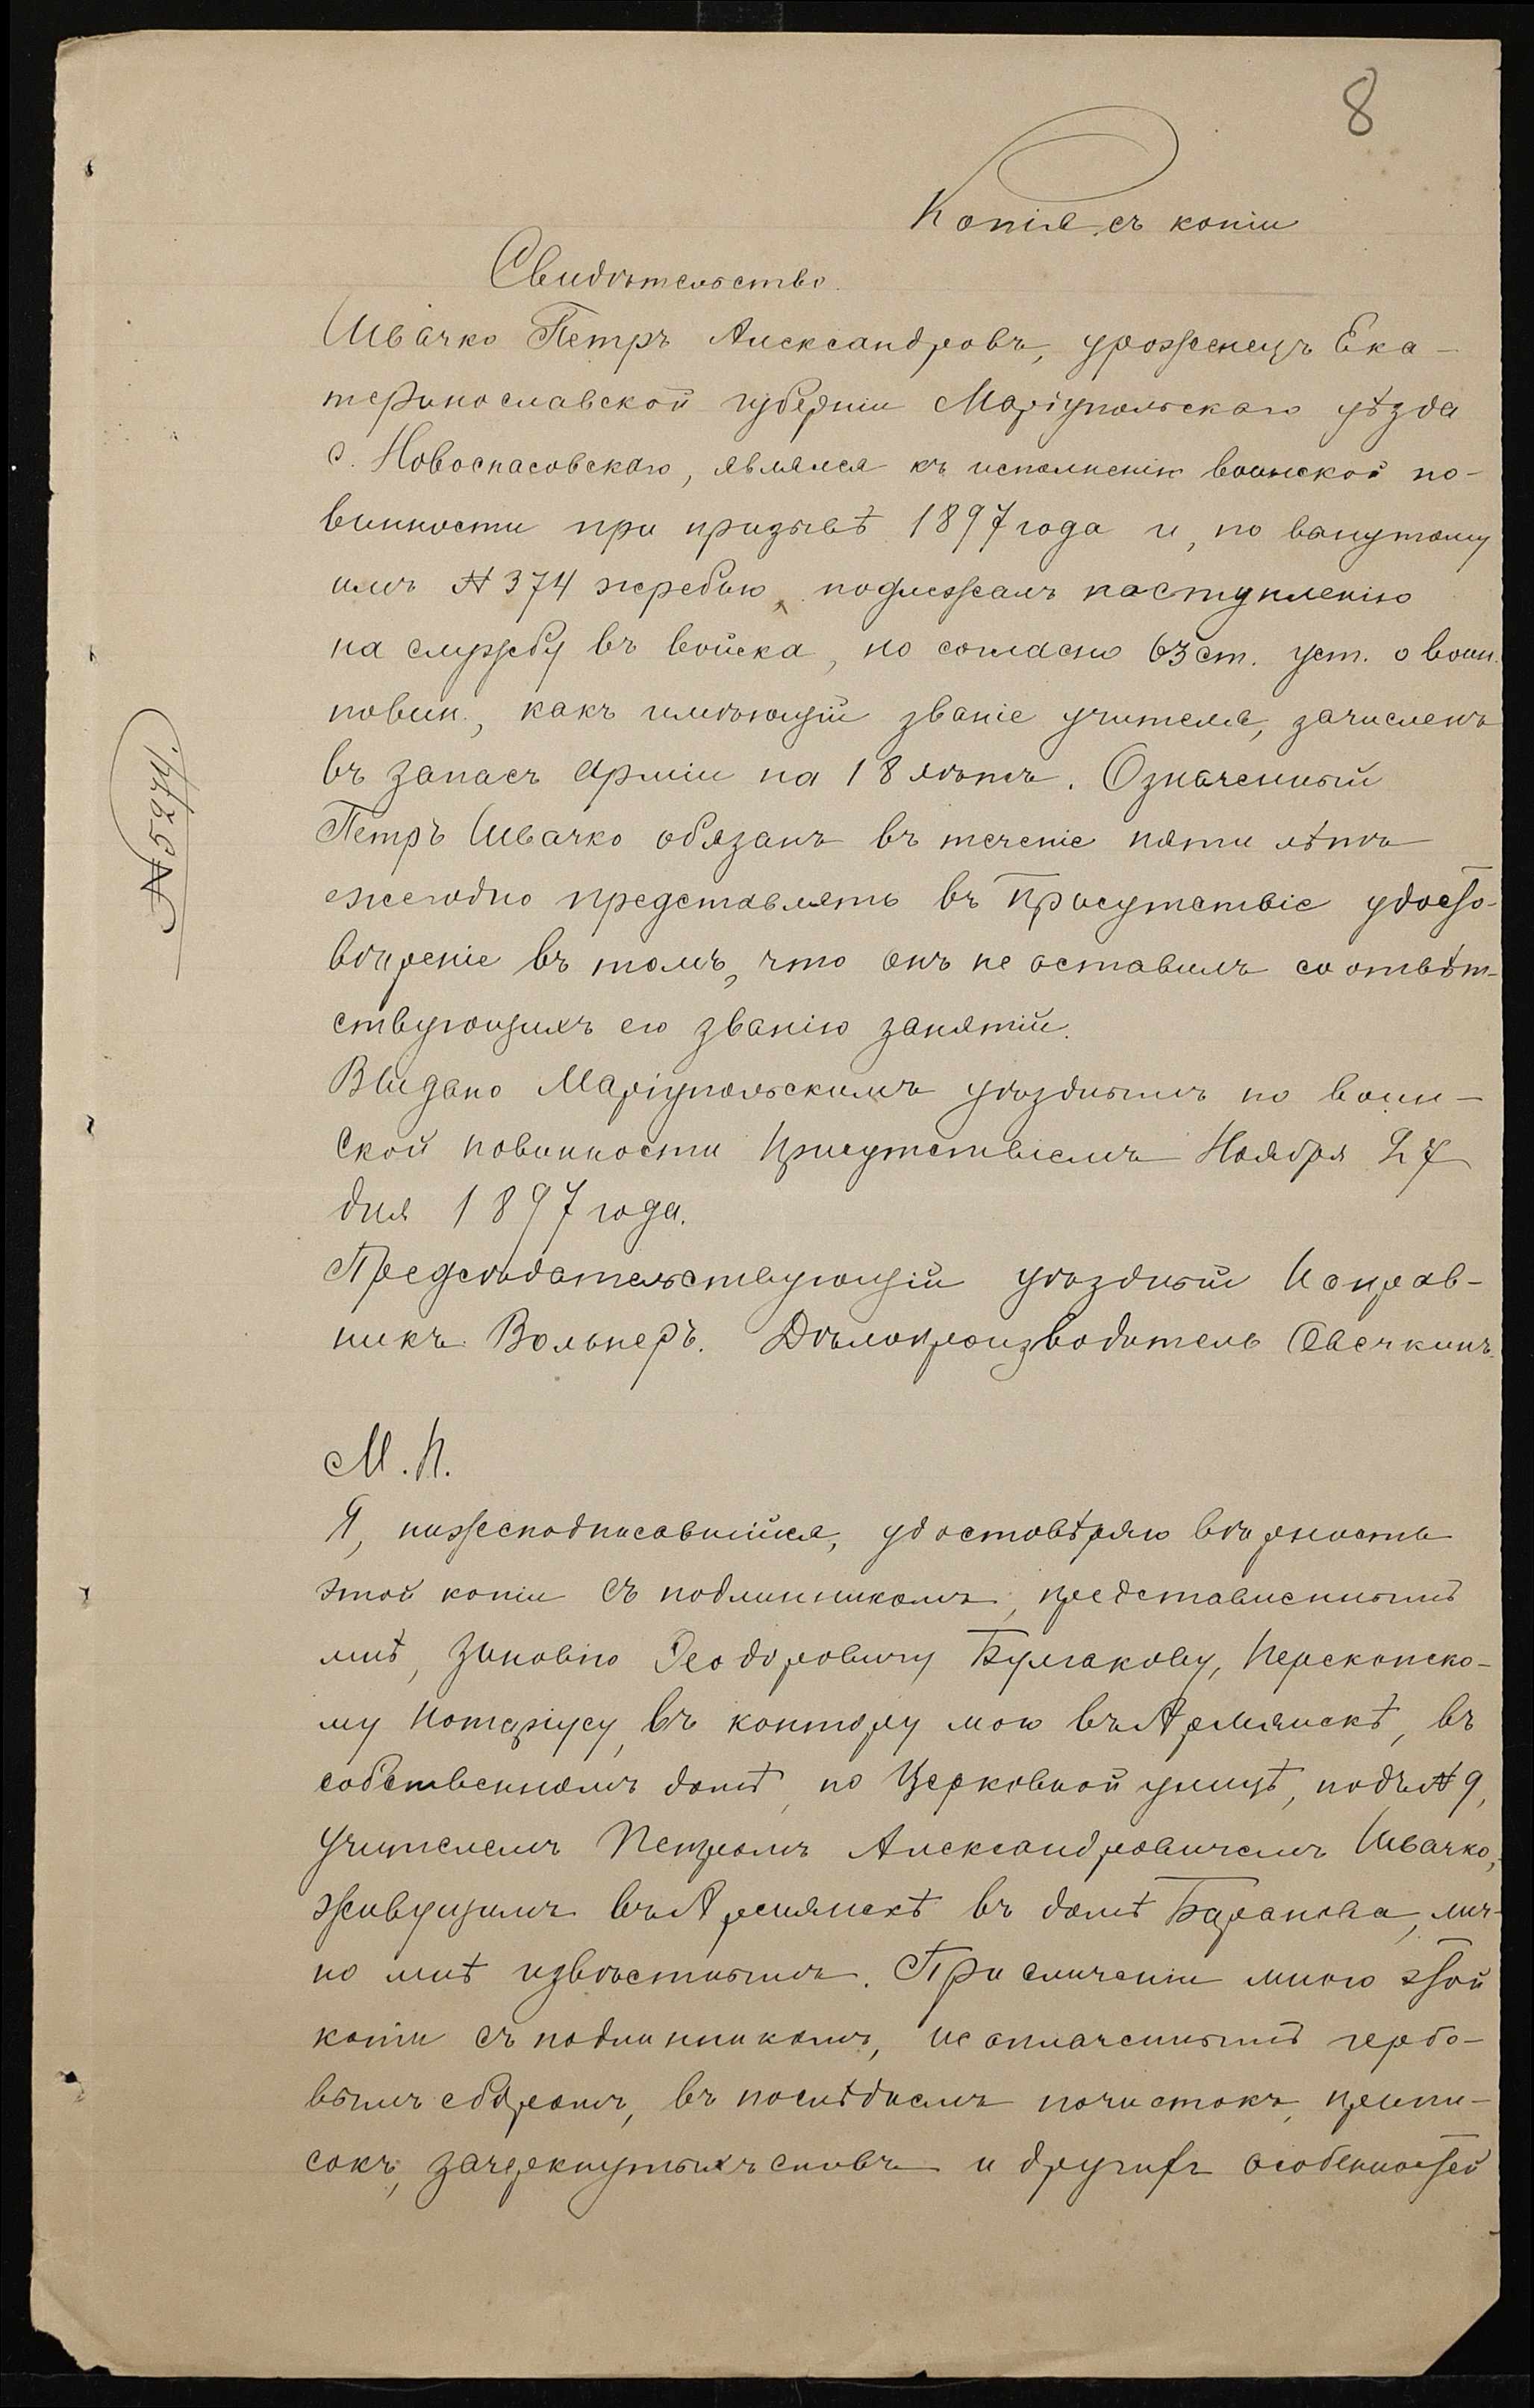 8
Копія съ копіи
Свидѣтельство.
Швачко Петръ Александровъ, уроженецъ Ека-
теринославской губерніи Маріупольскаго уѣзда
с. Новоспасовскаго, являлся къ исполненію воинской по-
винности при призывѣ 1897 года и, по вынутому
имъ № 374 жребью, подлежалъ поступленію
на службу въ войска, но согласно 63 ст. уст. о воин.
повин., какъ имѣющій званіе учителя, зачисленъ
въ запасъ арміи на 18 лѣтъ. Означенный
Петръ Швачко обязанъ въ теченіе пяти лѣтъ
ежегодно представлять въ Присутствіе удосто-
вѣреніе въ томъ, что онъ не оставилъ соотвѣт-
ствующихъ его званію занятій.
Выдано Маріупольскимъ уѣзднымъ по воин-
ской повинности Присутствіемъ Ноября 27
дня 1897 года.
Предсѣдательствующій уѣздный Исправ-
никъ Вольнеръ. Дѣлопроизводитель Овечкинъ.
М.П.
Я, нижеподписавшійся, удостовѣряю вѣрность
этой копіи съ подлинникомъ, представленнымъ
мнѣ, Зиновію Ѳеодоровичу Булгакову, Перекопско-
му Нотаріусу, въ контору мою въ Армянскѣ, въ
собственномъ домѣ, по Церковной улицѣ, подъ № 9,
учителемъ Петромъ Александровичемъ Швачко,
живущимъ въ Армянскѣ въ домѣ Баранова, лич-
но мнѣ извѣстнымъ. При сличеніи мною этой
копіи съ подлинникомъ, не оплаченнымъ гербо-
вымъ сборомъ, въ послѣднемъ почистокъ, припи-
сокъ, зачеркнутыхъ словъ и другихъ особенностей
№ 5244.